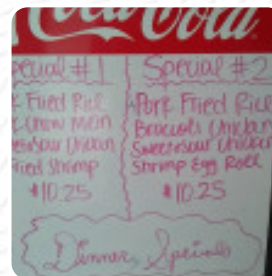 Coca-Cola
pecial #1
Fried Rice
Chow Mein
Sour Chicken
Fried Shrimp
$10.25
Special #2
Pork Fried Rice
Broccoli Chicken
Sweet & Sour Chicken
Shrimp Egg Roll
$10.25
Dinner Specials